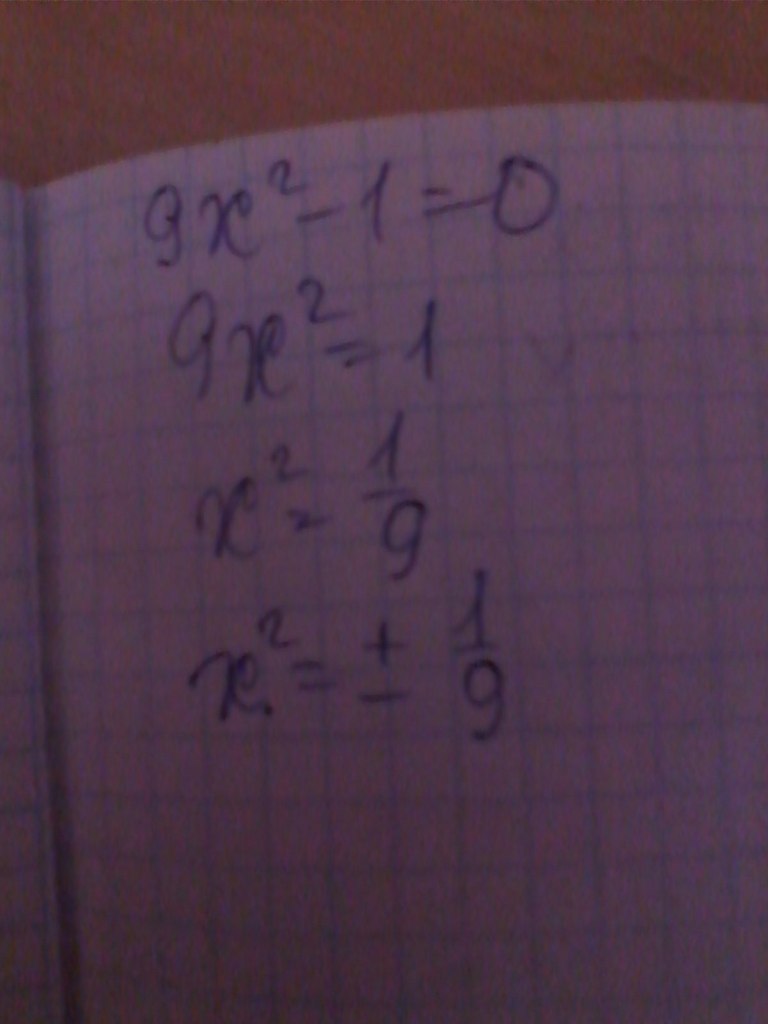 9x² - 1 = 0
9x² = 1
x² = 1/9
x² = ± 1/9